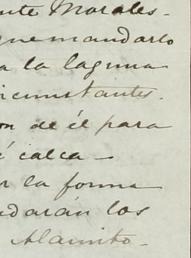 nte Morales-
que mandarlo
a la laguna
ircunstantes.
on de él para
é calca-
r la forma
ndarán los
Alamito.